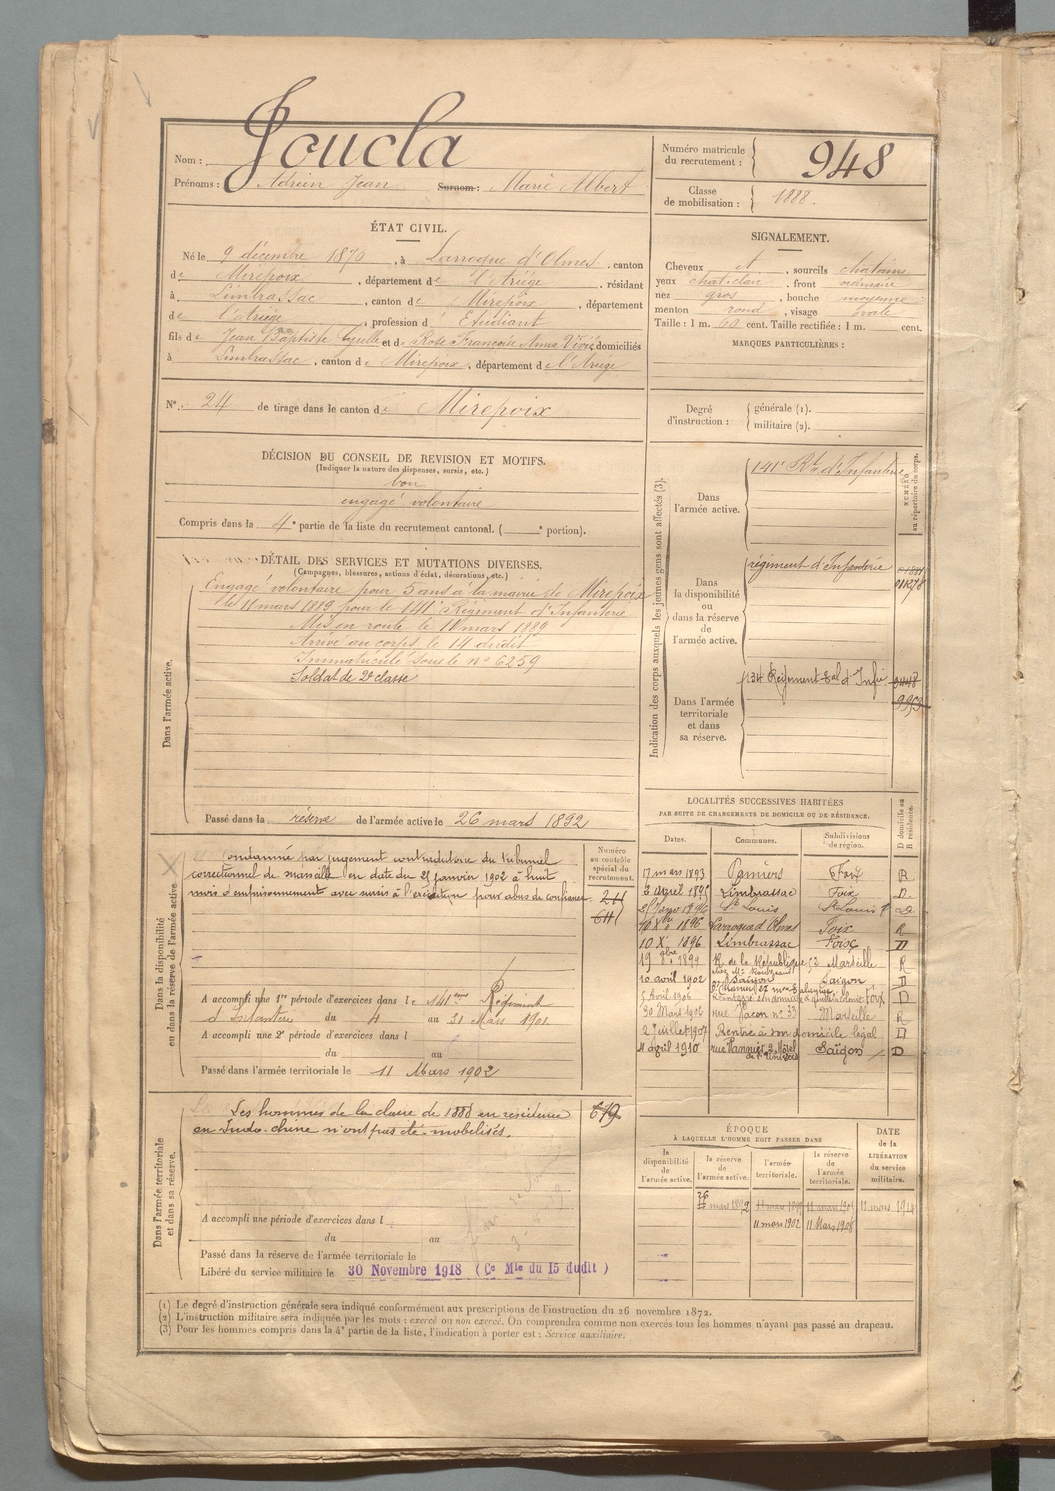 Nom : Joucla
Prénoms : Adrien Jean Surnom : Marie Albert
Numéro matricule du recrutement : 948
Classe de mobilisation : 1888.
ÉTAT CIVIL.
Né le 9 décembre 1870, à Larroque d'Olmes, canton
de Mirepoix, département de l'Ariège, résidant
à Limbrassac, canton de Mirepoix, département
de l'Ariège, profession d' Etudiant
fils de Jean Baptiste Cyrille et de Rose Françoise Anna domiciliés
à Limbrassac, canton de Mirepoix, département de l'Ariège
N° 24 de tirage dans le canton de Mirepoix
SIGNALEMENT.
Cheveux et, sourcils chatains
yeux chat. clair, front ordinaire
nez gros, bouche moyenne
menton rond, visage ovale
Taille : 1 m. 60 cent. Taille rectifiée : 1 m. cent.
MARQUES PARTICULIÈRES :
Degré d'instruction : générale (1).
militaire (2).
DÉCISION DU CONSEIL DE REVISION ET MOTIFS.
(Indiquer la nature des dispenses, sursis, etc.)
bon
engagé volontaire
Compris dans la 4e partie de la liste du recrutement cantonal. ( e portion).
DÉTAIL DES SERVICES ET MUTATIONS DIVERSES.
(Campagnes, blessures, actions d'éclat, décorations, etc.)
Dans l'armée active.
Engagé volontaire pour 5 ans à la mairie de Mirepoix
le 11 mars 1889 pour le 141e Régiment d'Infanterie
Mis en route le 11 mars 1889
Arrivé au corps le 14 dudit
Immatriculé sous le n° 6259
Soldat de 2e classe
Passé dans la réserve de l'armée active le 26 mars 1892
Indication des corps auxquels les jeunes gens sont affectés (3).
NUMÉRO au répertoire du corps.
Dans l'armée active.
141e Rt d'Infanterie
Dans la disponibilité ou dans la réserve de l'armée active.
régiment d'Infanterie
Dans l'armée territoriale et dans sa réserve.
134 Régiment tal d'Infie
Dans la disponibilité ou dans la réserve de l'armée active.
Condamné par jugement contradictoire du tribunal
correctionnel de Marseille en date du 21 janvier 1902 à huit
mois d'emprisonnement avec sursis à l'exécution pour abus de confiance.
Numéro au contrôle spécial du recrutement.
A accompli une 1re période d'exercices dans le 141eme Régiment
d'Infanterie du 4 au 31 Mars 1901.
A accompli une 2e période d'exercices dans l
du au
Passé dans l'armée territoriale le 11 Mars 1902
LOCALITÉS SUCCESSIVES HABITÉES
PAR SUITE DE CHANGEMENTS DE DOMICILE OU DE RÉSIDENCE.
Dates. Communes. Subdivisions de région. D domicile ou R résidence.
17 mars 1893 Pamiers Foix R
3 avril 1895 Limbrassac Foix D.
St Louis
10 Xbre 1896 Larroque d'Olmes Foix R
10 Xe 1896 Limbrassac Foix D
19 8bre 1899 R. de la République 52 Marseille R
10 avril 1902 Saïgon Saïgon D
5 Avril 1906 Foix D
30 Mars 1906 rue Pacon n° 33 Marseille R
2 Juillet 1907 Rentre à son domicile légal D
4 avril 1910 rue Vannier 2 Hôtel de l'Univers Saïgon D
Dans l'armée territoriale et dans sa réserve.
Les hommes de la classe de 1888 en résidence
en Indo-chine n'ont pas été mobilisés.
619
A accompli une période d'exercices dans l
du au
Passé dans la réserve de l'armée territoriale le
Libéré du service militaire le 30 Novembre 1918 (Ce Mle du 15 dudit)
ÉPOQUE
À LAQUELLE L'HOMME DOIT PASSER DANS
la disponibilité de l'armée active. la réserve de l'armée active. l'armée territoriale. la réserve de l'armée territoriale. DATE de la LIBÉRATION du service militaire.
26 mars 1892 11 mars 1914
11 mars 1902 11 Mars 1908
(1) Le degré d'instruction générale sera indiqué conformément aux prescriptions de l'instruction du 26 novembre 1872.
(2) L'instruction militaire sera indiquée par les mots : exercé ou non exercé. On comprendra comme non exercés tous les hommes n'ayant pas passé au drapeau.
(3) Pour les hommes compris dans la 4e partie de la liste, l'indication à porter est : Service auxiliaire.